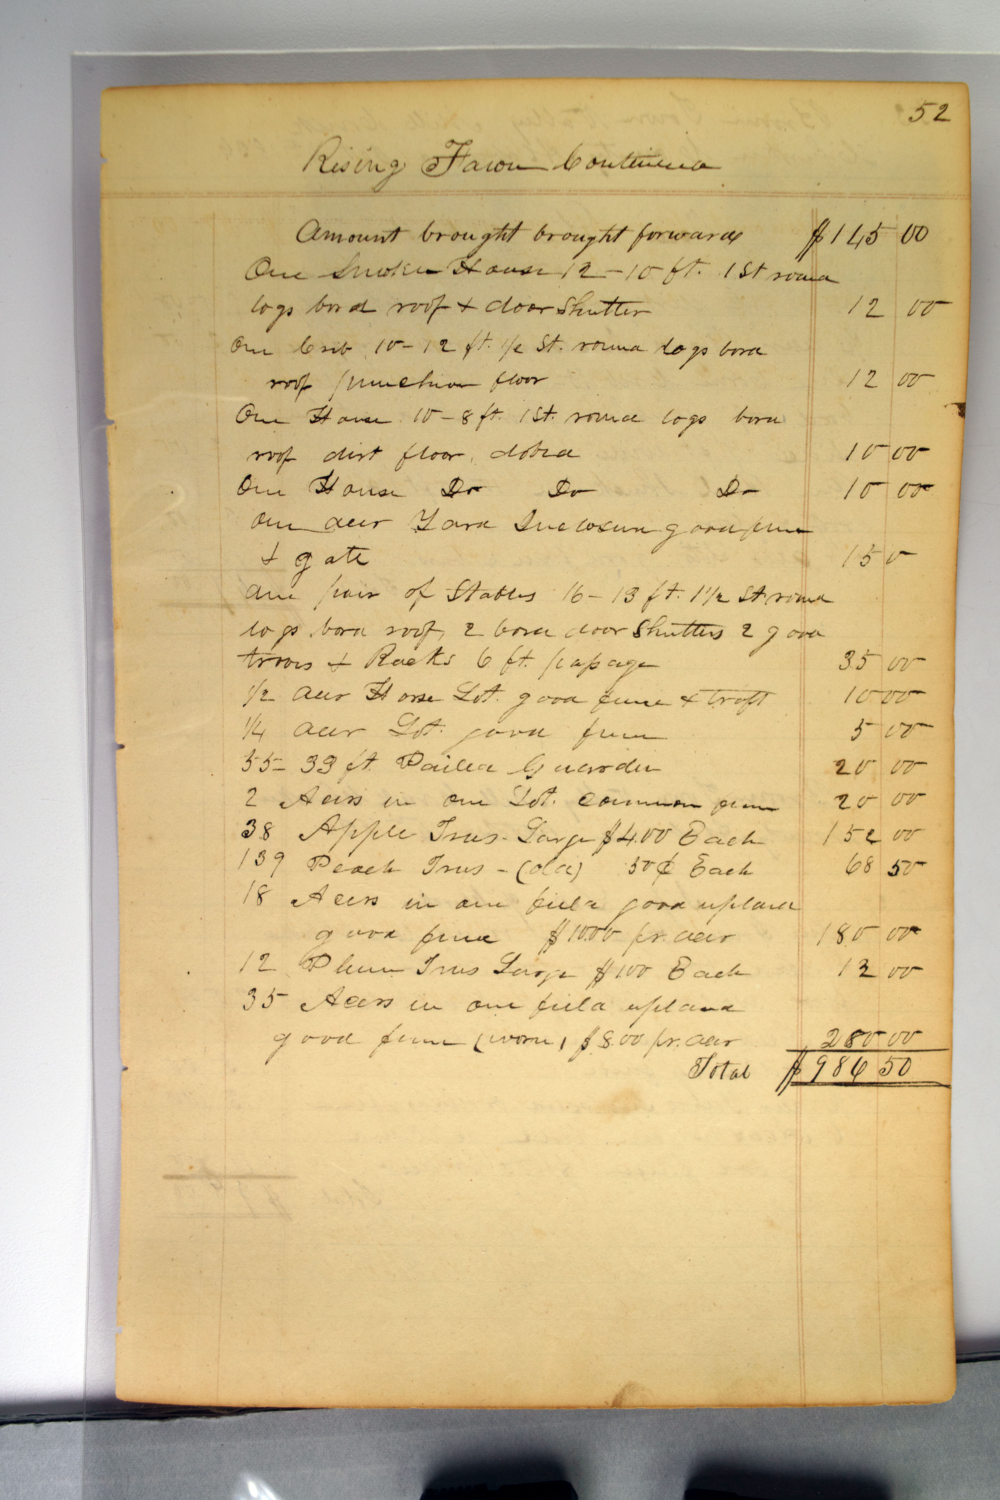 52
Rising Fawn Continued
Amount brought brought forward $145 00
One Smoke House 12–10 ft. 1 St round
logs bord roof & door Shutter 12 00
One Crib 10–12 ft. 1/2 St. round logs bord
roof punchion floor 12 00
One House 10–8 ft. 1 St. round logs bord
roof dirt floor, dobed 10 00
One House Do Do Do 10 00
one acer Yard Inclosure good fence
& gate 15 0
one pair of Stables 16–13 ft. 1 1/2 St. round
logs bord roof, 2 bord door Shutters 2 good
trovs & Racks 6 ft. passage 35 00
1/2 acer Horse Lot. good fence & troft 10 00
1/4 acer Lot. good fence 5 00
55–33 ft. Pailed Guarden 20 00
2 Acers in one Lot. common fence 20 00
38 Apple Trees Large $4.00 Each 152 00
139 Peach Trees – (old) 50¢ Each 68 50
18 Acers in one field good upland
good fence $10.00 pr. acer 180 00
12 Plum Trees Large $1 00 Each 12 00
35 Acers in one field upland
good fence (worn) $8.00 pr. acer 280 00
Total $986 50